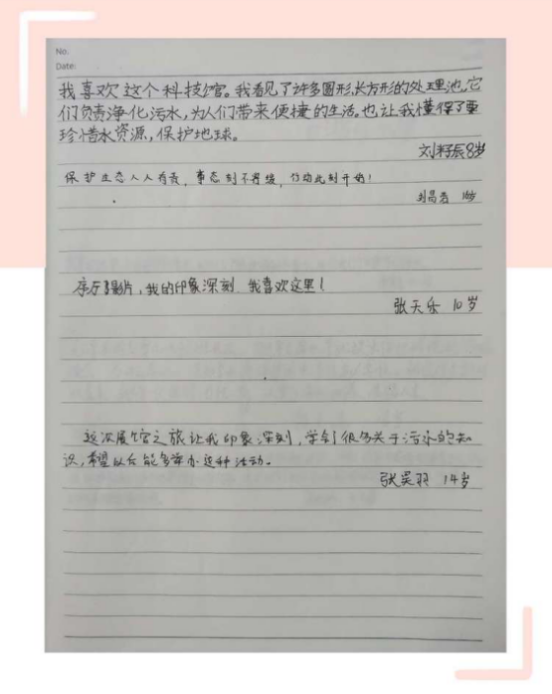 No.
Date:
我喜欢这个科技馆。我看见了许多圆形,长方形的处理池,它
们负责净化污水,为人们带来便捷的生活。也让我懂得了要
珍惜水资源,保护地球。
刘籽辰8岁
保护生态人人有责,事态刻不容缓,行动此刻开始!
刘昌
序厅影片,我的印象深刻 我喜欢这里!
张天乐 10岁
这次展馆之旅让我印象深刻,学到很多关于污水的知
识,希望以后能多举办这种活动。
张昊羽 14岁